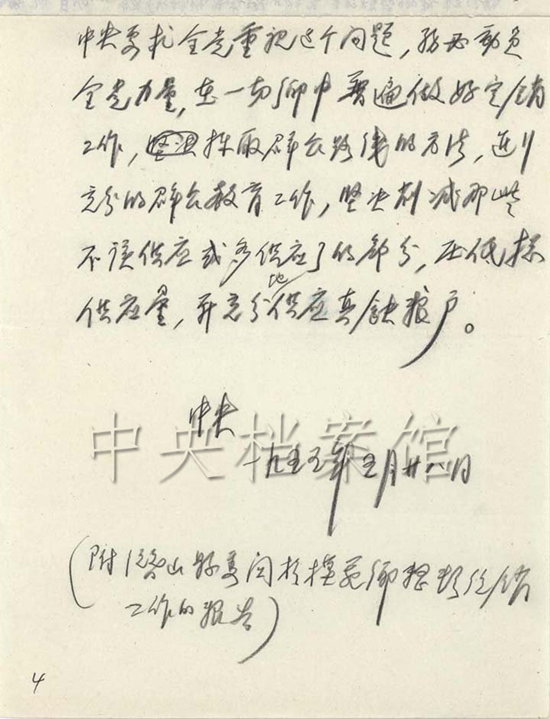 中央要求全党重视这个问题，务必动员
全党力量，在一切乡中普遍做好定销
工作，采取群众路线的方法，进行
充分的群众教育工作，坚决削减那些
不该供应或多供应了的部分，压低粮
供应量，并充分地供应真缺粮户。
中央
一九五五年五月廿八日
中央档案馆
（附：山县委关于模范乡粮食统销
工作的报告）
4